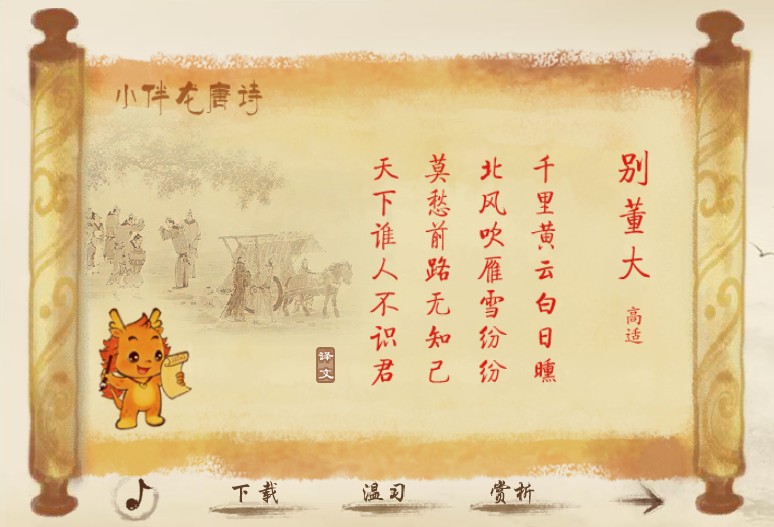 小伴龙唐诗
别董大
高适
千里黄云白日曛
北风吹雁雪纷纷
莫愁前路无知己
天下谁人不识君
译文
下载
温习
赏析